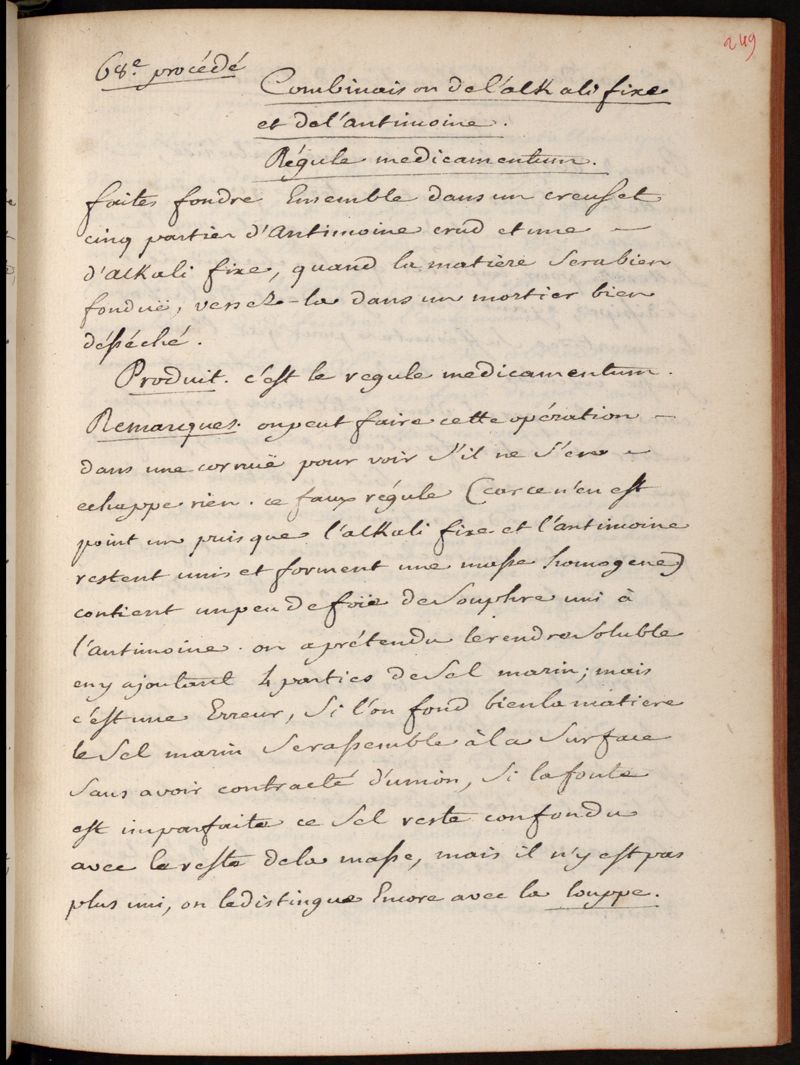 249
68.e procédé
Combinaison de l'alkali fixe
et de l'antimoine.
Régule medicamentum.
faites fondre Ensemble dans un creuset
cinq parties d'Antimoine crud et une –
d'alkali fixe, quand la matière sera bien
fonduë, versez-la dans un mortier bien
déséché.
Produit. c'est le regule medicamentum.
Remarques. on peut faire cette opération –
dans une cornuë pour voir s'il ne s'en –
echappe rien. ce faux régule (car ce n'en est
point un puisque l'alkali fixe et l'antimoine
restent unis et forment une masse homogene)
contient un peu de foïe de Souphre uni à
l'antimoine. on a prétendu le rendre Soluble
en y ajoutant 4 parties de Sel marin; mais
c'est une Erreur, Si l'on fond bien la matiere
le Sel marin Se rassemble à la Surface
Sans avoir contracté d'union, Si la fonte
est imparfaite ce Sel reste confondu
avec le reste de la masse, mais il n'y est pas
plus uni, on le distingue Encore avec la louppe.